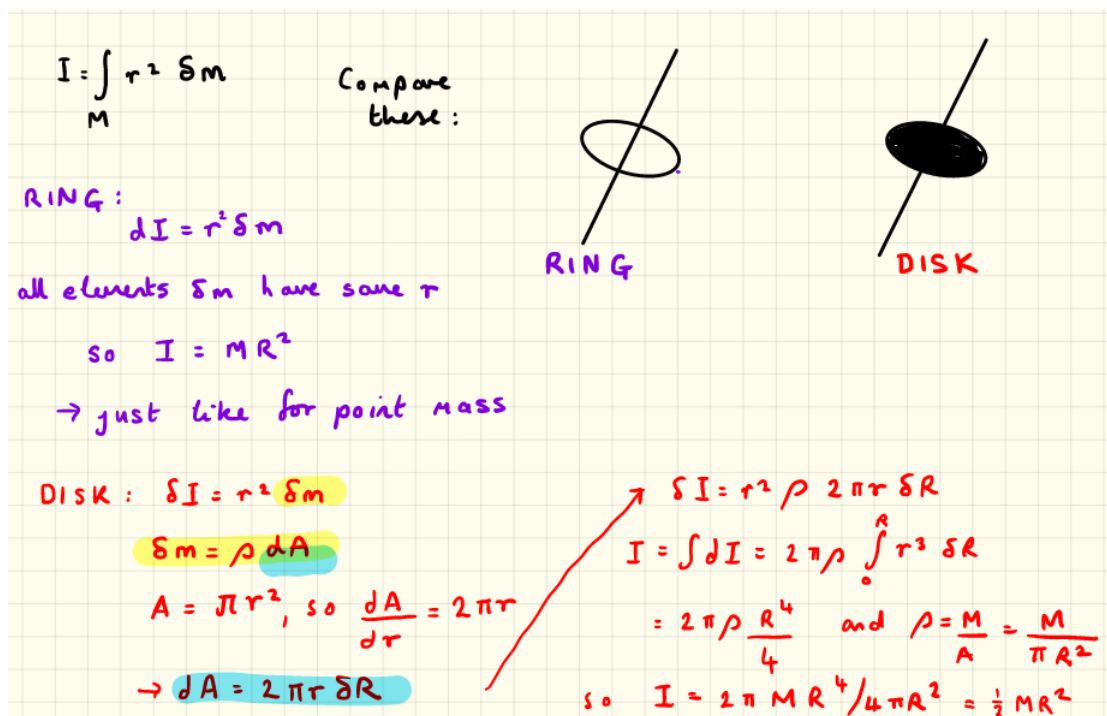 I = ∫ r² δm
M
Compare
these :
RING
DISK
RING :
dI = r² δm
all elements δm have same r
so I = MR²
→ just like for point mass
DISK : δI = r² δm
δm = ρ dA
A = πr², so dA/dr = 2πr
→ dA = 2πr δR
δI = r² ρ 2πr δR
I = ∫dI = 2πρ ∫₀ᴿ r³ δR
= 2πρ R⁴/4 and ρ = M/A = M/πR²
so I = 2π MR⁴/4πR² = ½ MR²